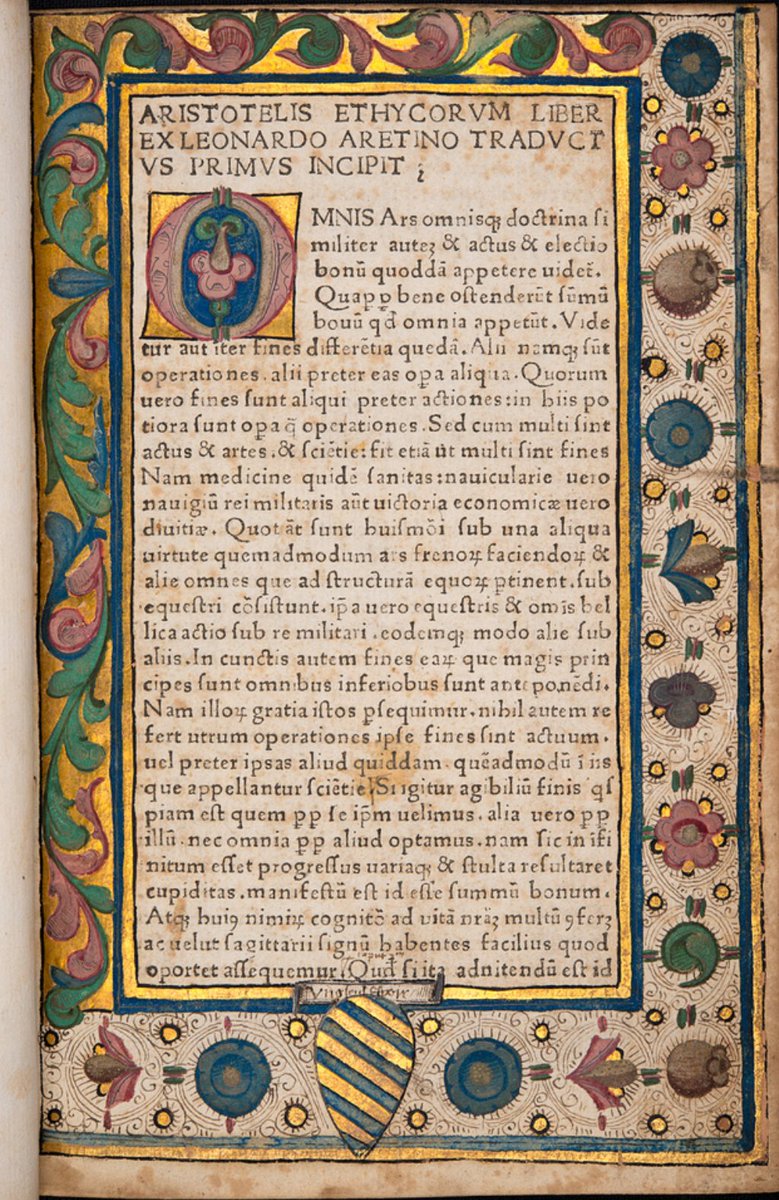 ARISTOTELIS ETHYCORVM LIBER
EX LEONARDO ARETINO TRADVCT
VS PRIMVS INCIPIT
OMNIS Ars omnisqꝫ doctrina si
militer auteꝫ & actus & electio
bonū quoddā appetere uidet᷑.
Quapp̱ bene ostenderūt sūmū
bouū qđ omnia appetūt. Vide
tur aut iter fines differētia quedā. Alii namqꝫ sūt
operationes. alii preter eas oꝑa aliqua. Quorum
uero fines sunt aliqui preter actiones: in hiis po
tiora sunt oꝑa q̄ operationes. Sed cum multi sint
actus & artes. & sciētie: fit etiā ut multi sint fines
Nam medicine quidē sanitas: nauicularie uero
nauigiū rei militaris aūt uictoria economicæ uero
diuitiæ. Quot āt sunt huismōi sub una aliqua
uirtute quemadmodum ars frenoꝝ faciendoꝝ &
alie omnes que ad structurā equoꝝ ꝑtinent. sub
equestri cōsistunt. ip̄a uero equestris & om̄is bel
lica actio sub re militari. eodemqꝫ modo alie sub
aliis. In cunctis autem fines eaꝝ que magis prin
cipes sunt omnibus inferiobus sunt ante ponēdi.
Nam illoꝝ gratia istos ꝓsequimur. nihil autem re
fert utrum operationes ipse fines sint actuum.
uel preter ipsas aliud quiddam. quēadmodū i iis
que appellantur sciētie. Si igitur agibiliū finis qͥs
piam est quem ꝓp se ip̄m uelimus. alia uero ꝓp
illū. nec omnia ꝓp aliud optamus. nam sic in īfi
nitum esset progressus uariaqꝫ & stulta resultaret
cupiditas. manifestū est id esse summū bonum.
Atqꝫ huiꝰ nimiꝝ cognitō ad uitā nr̄aꝫ multū ꝯferꝫ
ac uelut sagittarii signū habentes facilius quod
oportet assequemur. Qud si ita adnitendū est id